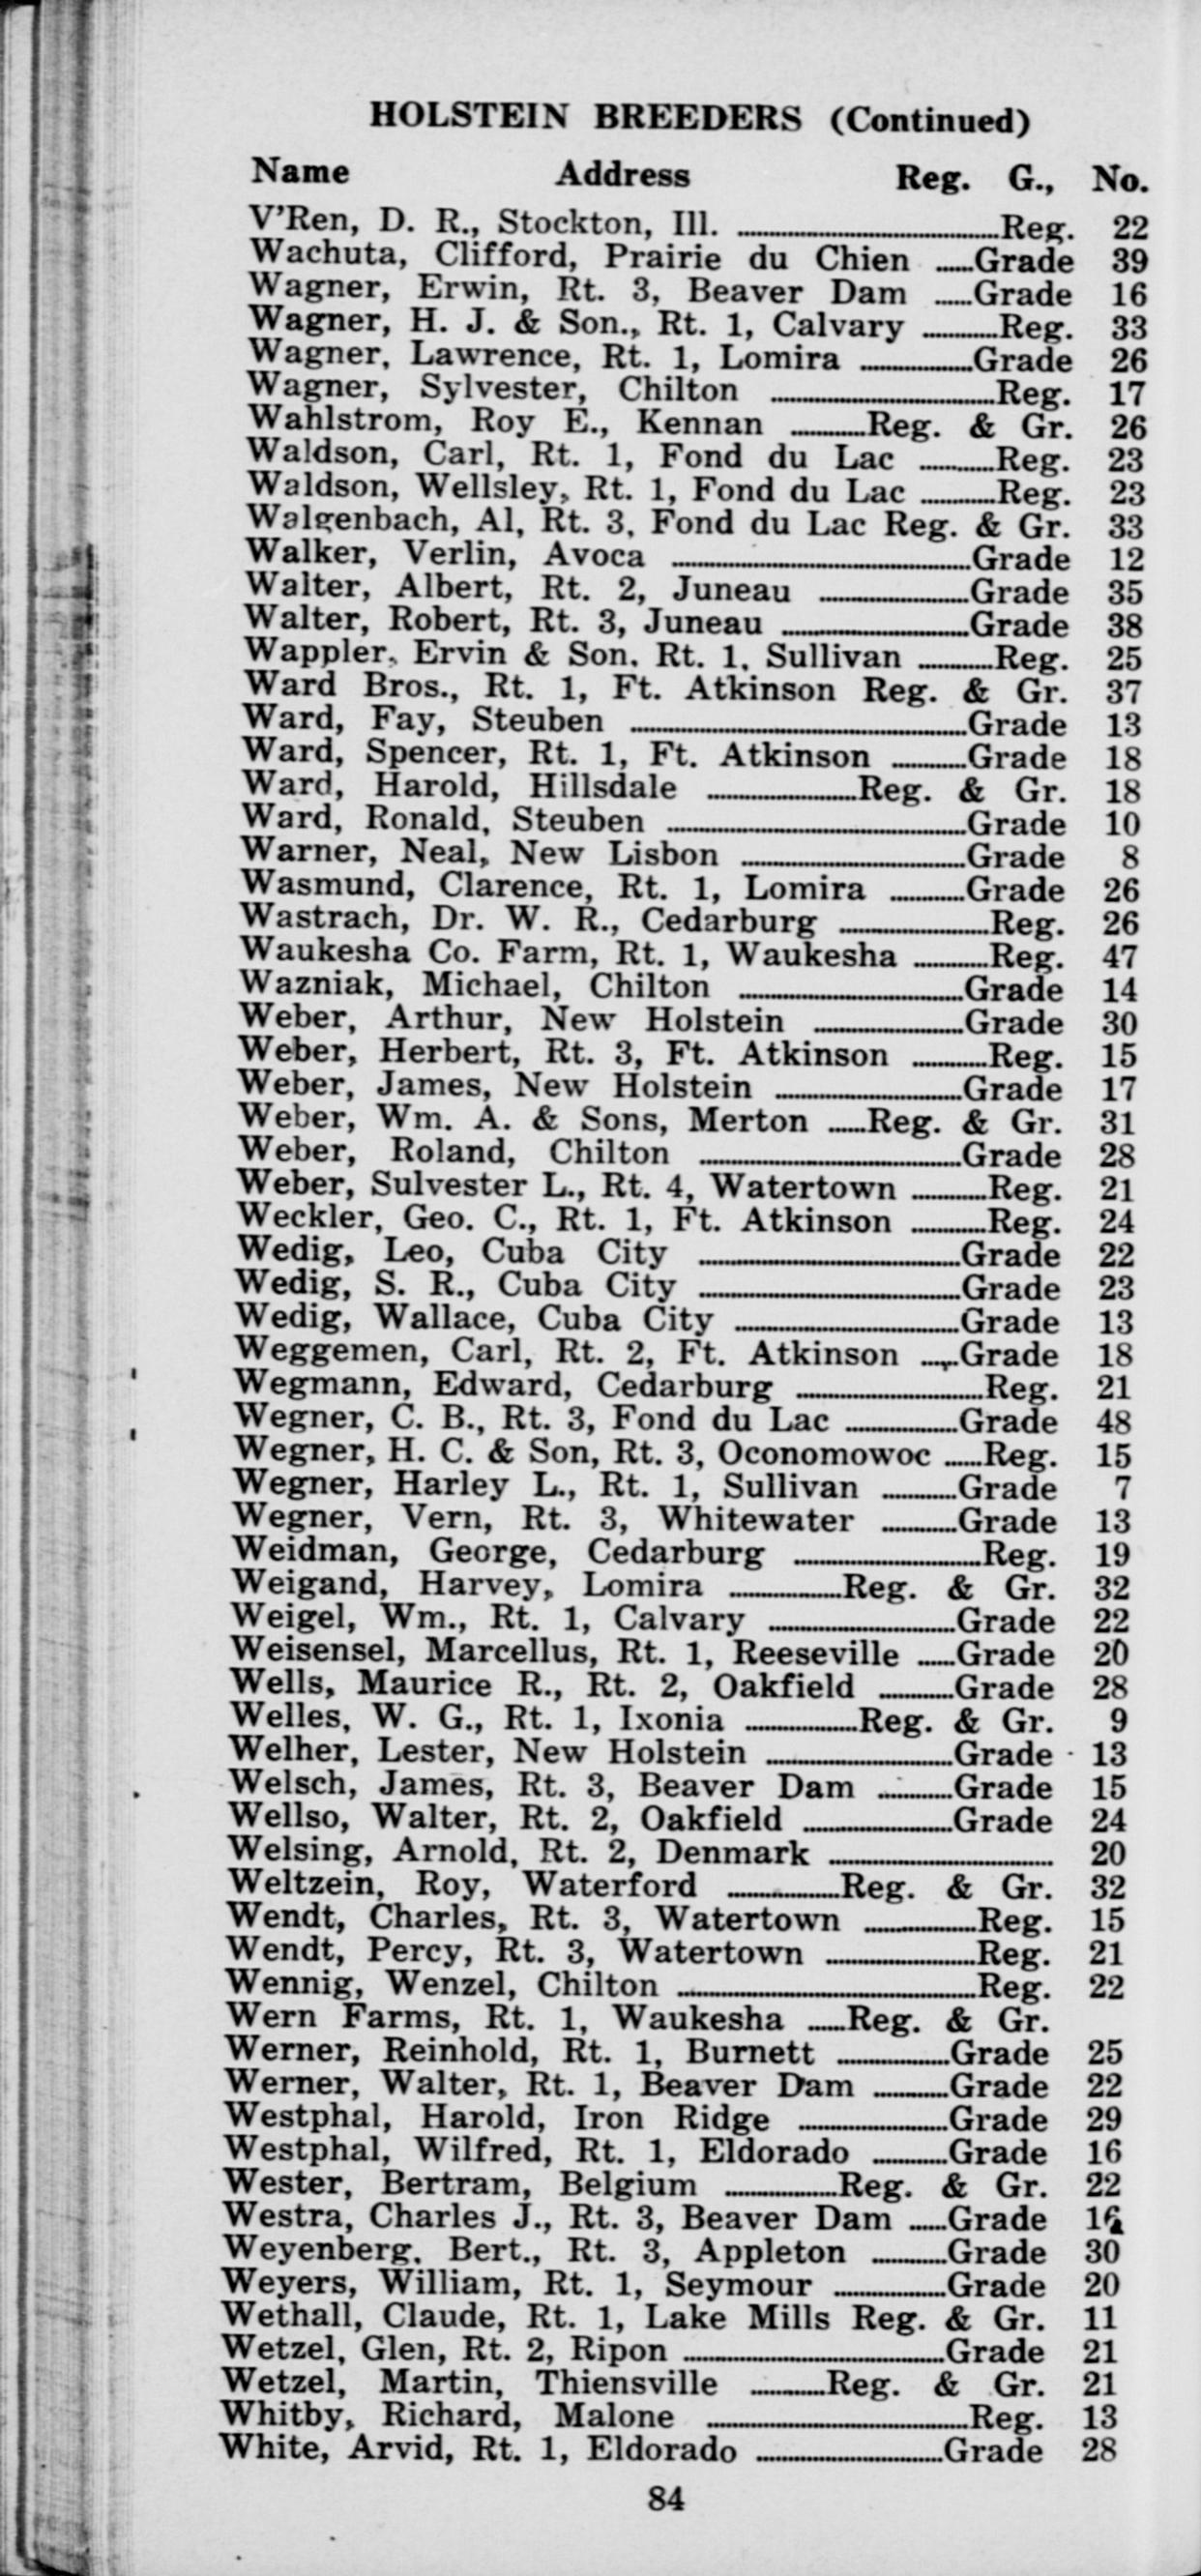 HOLSTEIN BREEDERS (Continued)
Name Address Reg. G., No.
V'Ren, D. R., Stockton, Ill. ........Reg. 22
Wachuta, Clifford, Prairie du Chien ......Grade 39
Wagner, Erwin, Rt. 3, Beaver Dam ......Grade 16
Wagner, H. J. & Son., Rt. 1, Calvary ............Reg. 33
Wagner, Lawrence, Rt. 1, Lomira ..................Grade 26
Wagner, Sylvester, Chilton ........Reg. 17
Wahlstrom, Roy E., Kennan ............Reg. & Gr. 26
Waldson, Carl, Rt. 1, Fond du Lac ............Reg. 23
Waldson, Wellsley, Rt. 1, Fond du Lac ............Reg. 23
Walgenbach, Al, Rt. 3, Fond du Lac Reg. & Gr. 33
Walker, Verlin, Avoca ........Grade 12
Walter, Albert, Rt. 2, Juneau ........Grade 35
Walter, Robert, Rt. 3, Juneau ........Grade 38
Wappler, Ervin & Son. Rt. 1, Sullivan ............Reg. 25
Ward Bros., Rt. 1, Ft. Atkinson Reg. & Gr. 37
Ward, Fay, Steuben ........Grade 13
Ward, Spencer, Rt. 1, Ft. Atkinson ............Grade 18
Ward, Harold, Hillsdale ........Reg. & Gr. 18
Ward, Ronald, Steuben ........Grade 10
Warner, Neal, New Lisbon ........Grade 8
Wasmund, Clarence, Rt. 1, Lomira ............Grade 26
Wastrach, Dr. W. R., Cedarburg ........Reg. 26
Waukesha Co. Farm, Rt. 1, Waukesha ............Reg. 47
Wazniak, Michael, Chilton ........Grade 14
Weber, Arthur, New Holstein ........Grade 30
Weber, Herbert, Rt. 3, Ft. Atkinson ............Reg. 15
Weber, James, New Holstein ........Grade 17
Weber, Wm. A. & Sons, Merton ......Reg. & Gr. 31
Weber, Roland, Chilton ........Grade 28
Weber, Sulvester L., Rt. 4, Watertown ............Reg. 21
Weckler, Geo. C., Rt. 1, Ft. Atkinson ............Reg. 24
Wedig, Leo, Cuba City ........Grade 22
Wedig, S. R., Cuba City ........Grade 23
Wedig, Wallace, Cuba City ........Grade 13
Weggemen, Carl, Rt. 2, Ft. Atkinson ......Grade 18
Wegmann, Edward, Cedarburg ........Reg. 21
Wegner, C. B., Rt. 3, Fond du Lac ........Grade 48
Wegner, H. C. & Son, Rt. 3, Oconomowoc ......Reg. 15
Wegner, Harley L., Rt. 1, Sullivan ............Grade 7
Wegner, Vern, Rt. 3, Whitewater ............Grade 13
Weidman, George, Cedarburg ........Reg. 19
Weigand, Harvey, Lomira ........Reg. & Gr. 32
Weigel, Wm., Rt. 1, Calvary ........Grade 22
Weisensel, Marcellus, Rt. 1, Reeseville ......Grade 20
Wells, Maurice R., Rt. 2, Oakfield ............Grade 28
Welles, W. G., Rt. 1, Ixonia ........Reg. & Gr. 9
Welher, Lester, New Holstein ........Grade 13
Welsch, James, Rt. 3, Beaver Dam ............Grade 15
Wellso, Walter, Rt. 2, Oakfield ........Grade 24
Welsing, Arnold, Rt. 2, Denmark ........ 20
Weltzein, Roy, Waterford ........Reg. & Gr. 32
Wendt, Charles, Rt. 3, Watertown ........Reg. 15
Wendt, Percy, Rt. 3, Watertown ........Reg. 21
Wennig, Wenzel, Chilton ........Reg. 22
Wern Farms, Rt. 1, Waukesha ......Reg. & Gr.
Werner, Reinhold, Rt. 1, Burnett ........Grade 25
Werner, Walter, Rt. 1, Beaver Dam ............Grade 22
Westphal, Harold, Iron Ridge ........Grade 29
Westphal, Wilfred, Rt. 1, Eldorado ............Grade 16
Wester, Bertram, Belgium ........Reg. & Gr. 22
Westra, Charles J., Rt. 3, Beaver Dam ......Grade 16
Weyenberg, Bert., Rt. 3, Appleton ............Grade 30
Weyers, William, Rt. 1, Seymour ........Grade 20
Wethall, Claude, Rt. 1, Lake Mills Reg. & Gr. 11
Wetzel, Glen, Rt. 2, Ripon ........Grade 21
Wetzel, Martin, Thiensville ............Reg. & Gr. 21
Whitby, Richard, Malone ........Reg. 13
White, Arvid, Rt. 1, Eldorado ........Grade 28
84